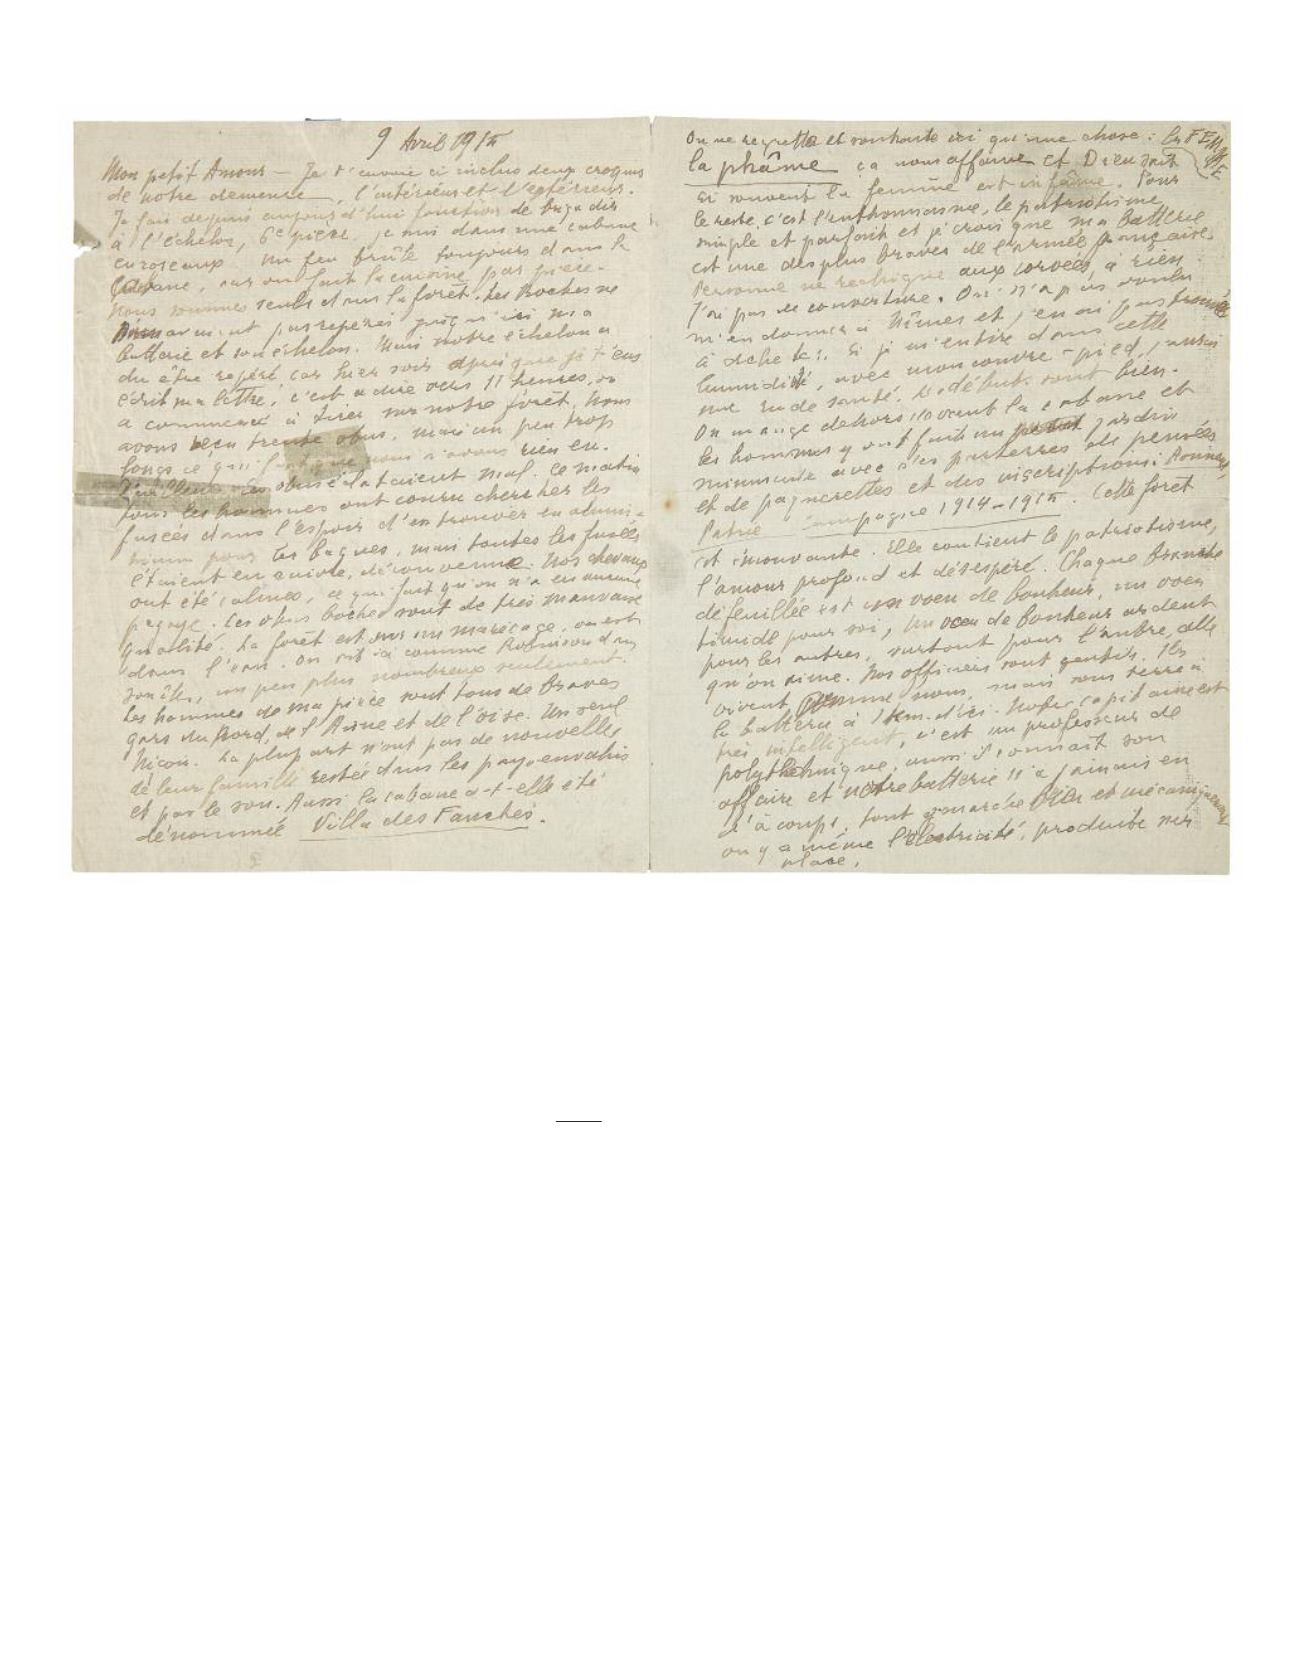 9 Avril 1915
Mon petit Amour — Je t'envoie ci inclus deux croquis
de notre demeure, l'intérieur et l'extérieur.
Je fais depuis aujourd'hui fonction de brigadier
à l'échelon, 6e pièce. je suis dans une cabane
en roseaux. Un feu brûle toujours dans la
cabane, car on fait la cuisine par pièce.
Nous sommes seuls dans la forêt. Les Boches ne
m'avaient pas repéré jusqu'ici ma
batterie et son échelon. Mais notre échelon a
du être repéré car hier soir après que je t'eus
écrit ma lettre, c'est a dire vers 11 heures, on
a commencé à tirer sur notre forêt. Nous
avons reçu trente obus, mais un peu trop
longs ce qui fait que nous n'avons rien eu.
Les obus éclataient mal. Ce matin
tous les hommes ont couru chercher les
fusées dans l'espoir d'en trouver en alumi-
nium pour les bagues, mais toutes les fusées
étaient en cuivre, déconvenue. Nos chevaux
ont été calmes, ce qui fait qu'on n'a eu aucune
pagaye. Les obus boches sont de très mauvaise
qualité. La forêt est sur un marécage, on est
dans l'eau. On vit ici comme Robinson dans
son île, un peu plus nombreux seulement.
Les hommes de ma pièce sont tous de braves
gars du Nord, de l'Aisne et de l'Oise. Un seul
Niçois. La plupart n'ont pas de nouvelles
de leur famille restée dans les pays envahis
et pas le sou. Aussi la cabane a-t-elle été
dénommée Villa des Fauchés.
On ne regrette et souhaite ici qu'une chose : la FEMME
la phâme ça nous affame et Dieu sait
si souvent la femme est infâme. Pour
le reste c'est l'enthousiasme, le patriotisme
simple et parfait et je crois que ma batterie
est une des plus braves de l'armée française.
Personne ne rechigne aux corvées, à rien.
J'ai pas de couverture. On n'a pas voulu
m'en donner à Nîmes et j'en ai pas trouvé
à acheter. Si je m'en tire dans cette
humidité, avec mon couvre-pied, j'aurai
une rude santé. Les débuts sont bien.
On mange dehors devant la cabane et
les hommes y ont fait un petit jardin
minuscule avec des parterres de pensées
et de paquerettes et des inscriptions : Honneur,
Patrie Campagne 1914-1915. Cette forêt
est émouvante. Elle contient le patriotisme,
l'amour profond et désespéré. Chaque branche
défeuillée est un voeu de bonheur, un voeu
timide pour soi, un voeu de bonheur ardent
pour les autres, surtout pour l'autre, celle
qu'on aime. Nos officiers sont gentils. Ils
vivent comme nous, mais sous terre à
la batterie à 1km. d'ici. Notre capitaine est
très intelligent, c'est un professeur de
polythechnique, aussi il connait son
affaire et notre batterie n'a jamais eu
d'à coups, tout y marche bien et mécaniquement
on y a même l'électricité, produite sur
place.